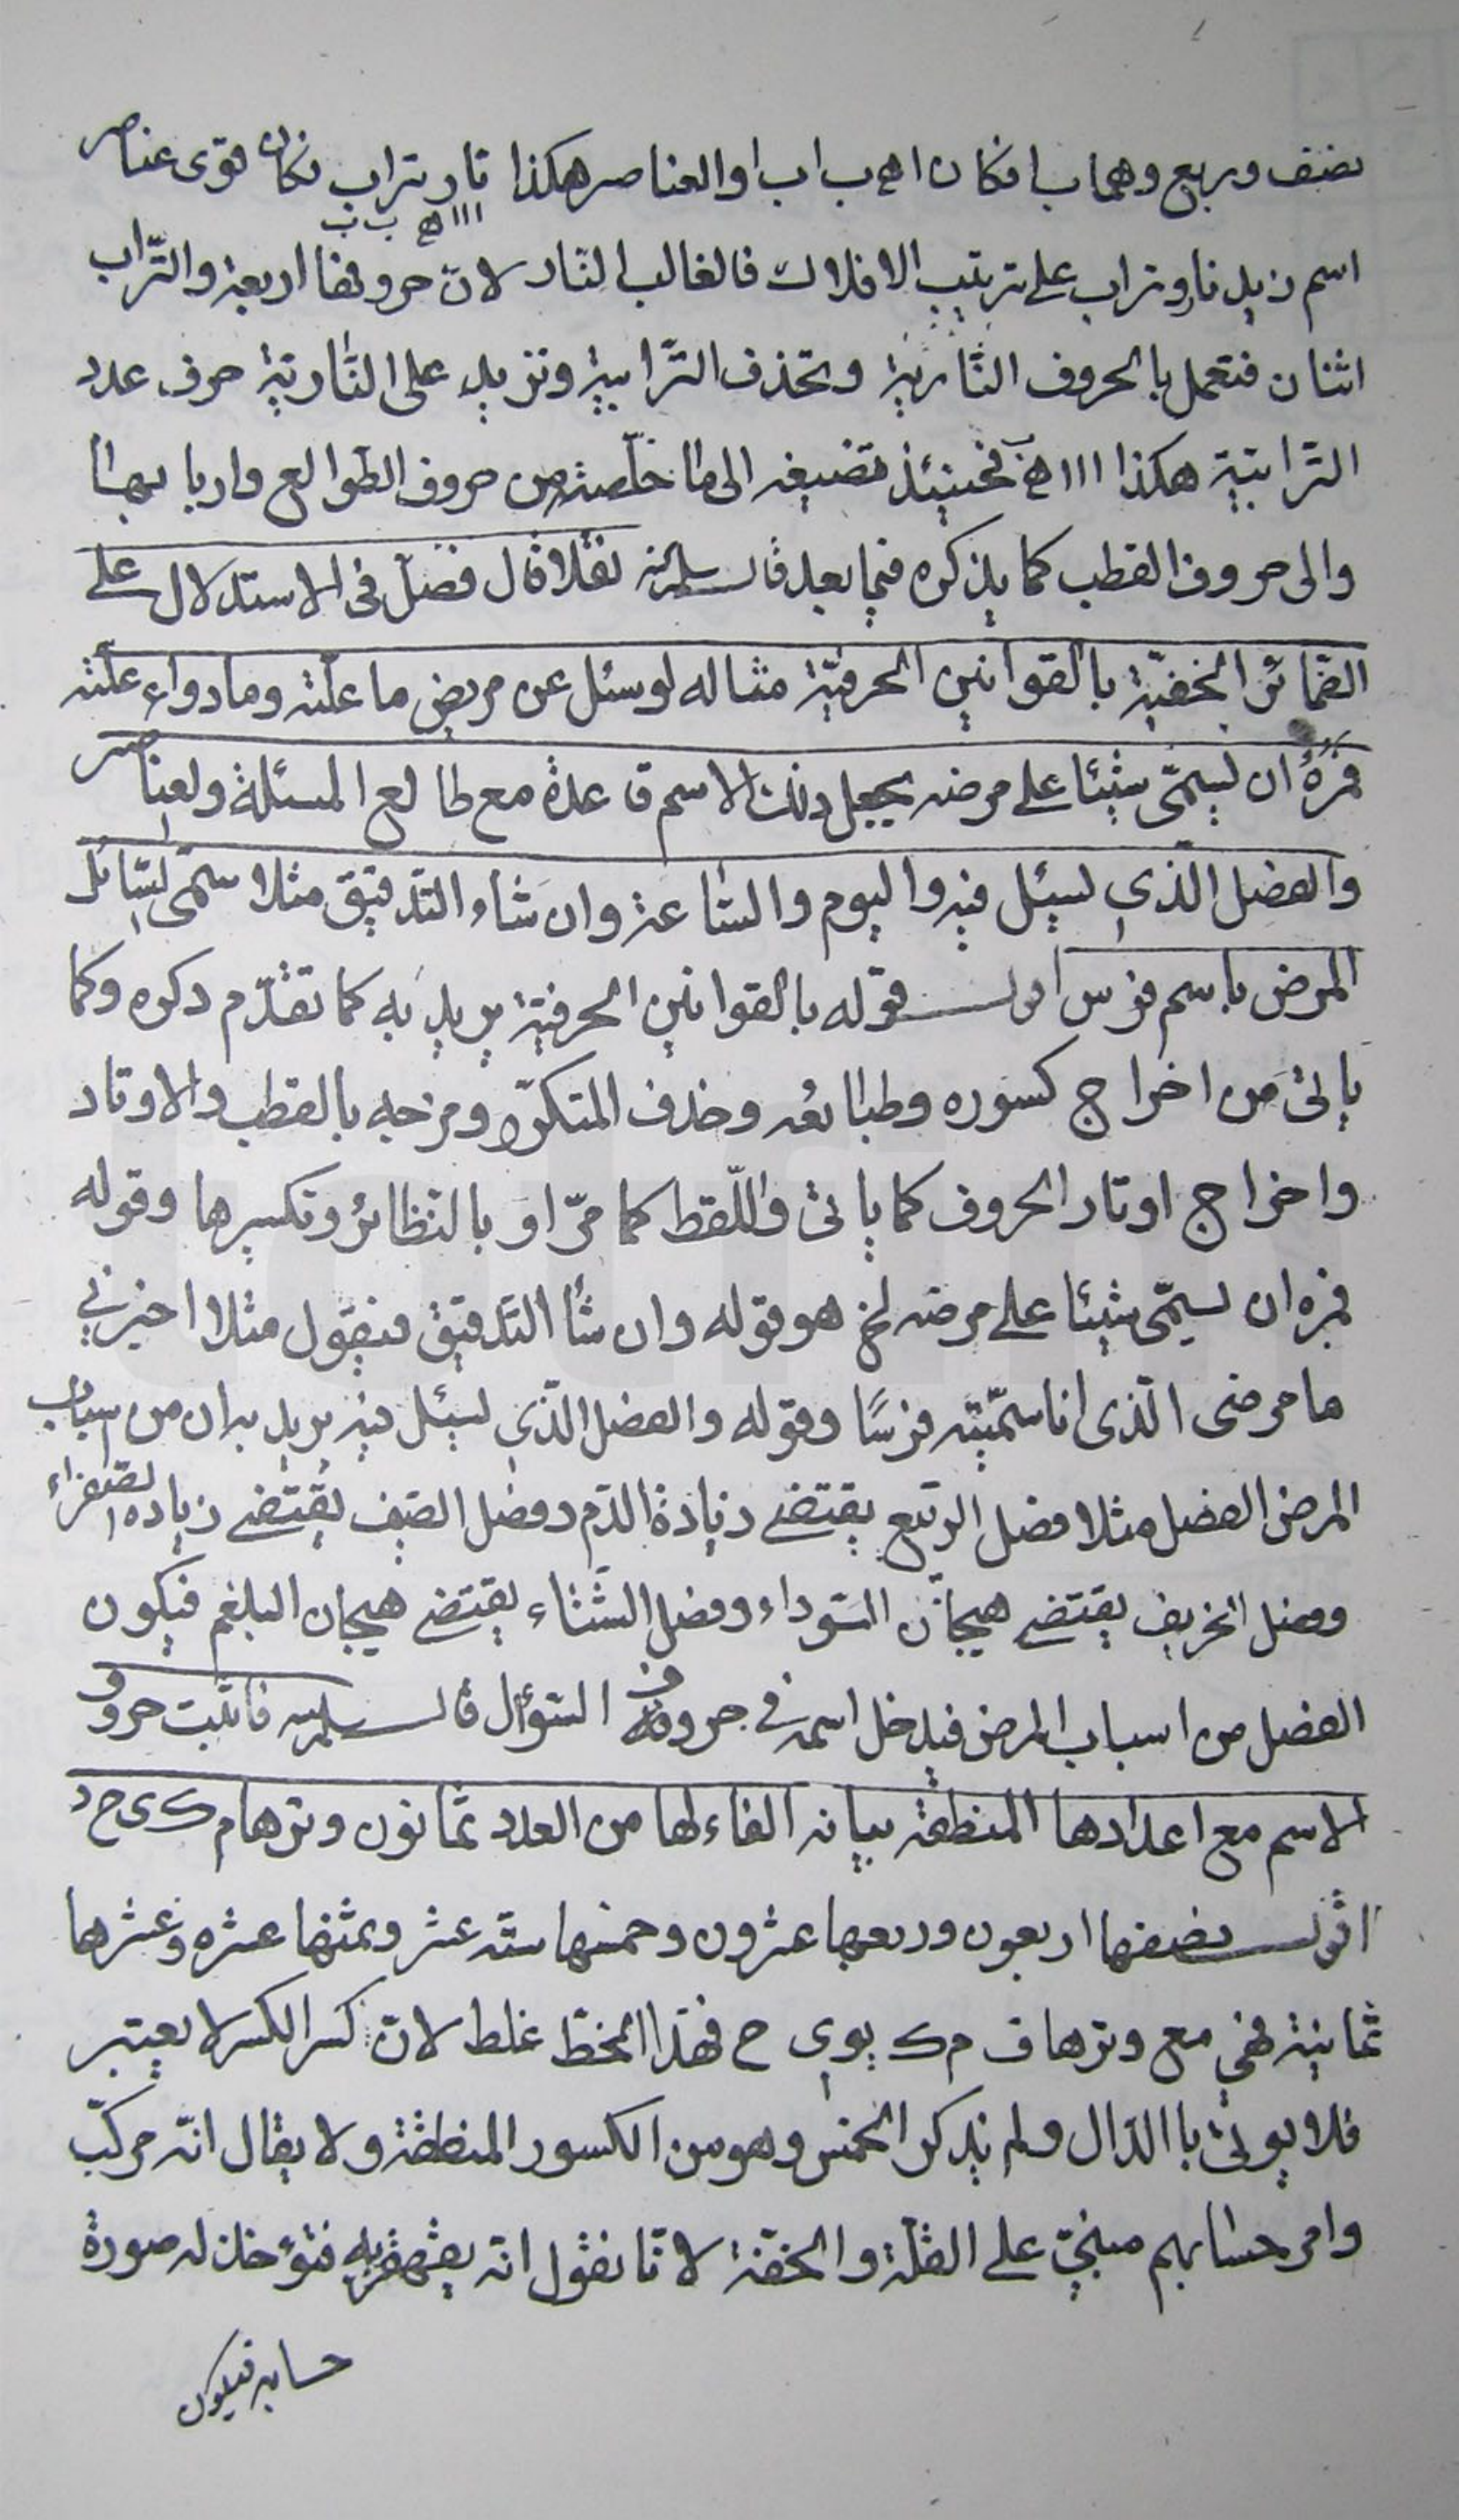 نصف وربع وهما ب ا فكان ا ه ب ا ب ا والعناصر هكذا نار تراب فكان قوى عناصر
ااا ه ب ب
اسم زيد نار وتراب على ترتيب الافلاك فالغالب النار لانّ حروفها اربعة والتّراب
اثنان فتعمل بالحروف النّاريّة وتحذف التّرابيّة وتزيد على النّاريّة حرف عدد
التّرابيّة هكذا ااا ه ب فحينئذ تضيفه الى ما خلّصته من حروف الطّوالع واربابها
والى حروف القطب كما يذكره فيما بعد قال سلمه نقلا قال فصل فى الاستدلال على
الضّمائر الخفيّة بالقوانين الحرفيّة مثاله لو سئل عن مريض ما علّته وما دواء علّته
فمره ان يسمّى شيئا على مرضه يجعل ذلك الاسم قاعدة مع طالع المسئلة والعناصر
والفصل الّذي يسئل فيه واليوم والسّاعة وان شاء التّدقيق مثلا سمّى السّائل
المرض باسم فرس اقول قوله بالقوانين الحرفيّة يريد به كما تقدّم ذكره وكما
ياتى من اخراج كسوره وطبائعه وحذف المتكرّر ومزجه بالقطب والاوتاد
واخراج اوتار الحروف كما ياتى واللّقط كما مرّ او بالنظائر وتكسيرها وقوله
فمره ان يسمّى شيئا على مرضه الخ هو قوله وان شاء التّدقيق فيقول مثلا اخبرني
ما مرضى الّذى انا سمّيته فرسًا وقوله والفصل الّذي يسئل فيه يريد به ان من اسباب
المرض الفصل مثلا فصل الرّبيع يقتضى زيادة الدّم وفصل الصّيف يقتضى زيادة الصّفراء
وفصل الخريف يقتضى هيجان السّوداء وفصل الشّتاء يقتضى هيجان البلغم فيكون
الفصل من اسباب المرض فيدخل اسمه في حروف السّؤال قال سلمه فاثبت حروف
الاسم مع اعدادها المنطقة بيانه الفاء لها من العدد ثمانون وترها م ك ى ح د
اقول نصفها اربعون وربعها عشرون وخمسها ستّة عشر وثمنها عشرة وعشرها
ثمانية فهي مع وترها ف م ك يو ى ح فهذا الخطّ غلط لانّ كسر الكسر لا يعتبر
فلا يؤتى بالدّال ولم يذكر الخمس وهو من الكسور المنطقة ولا يقال انّه مركّب
وامر حسابهم مبنيّ على القلّة والخفّة لانّا نقول انّه يقهقر به فتؤخذ له صورة
حسابه فيكون